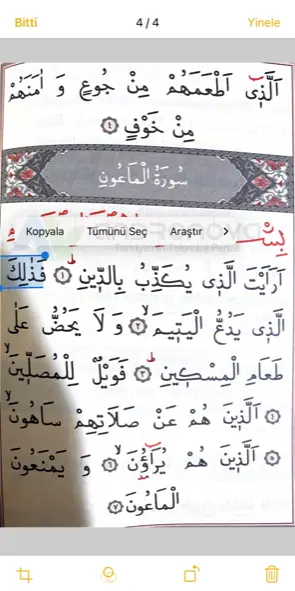 Bitti 4 / 4 Yinele
اَلَّذ۪ٓى اَطْعَمَهُمْ مِنْ جُوعٍ وَ اٰمَنَهُمْ
مِنْ خَوْفٍ ﴿٤﴾
سُورَةُ الْمَاعُونِ
Kopyala Tümünü Seç Araştır
اَرَاَيْتَ الَّذ۪ى يُكَذِّبُ بِالدّ۪ينِ ﴿١﴾ فَذٰلِكَ
الَّذ۪ى يَدُعُّ الْيَت۪يمَ ﴿٢﴾ وَ لَا يَحُضُّ عَلٰى
طَعَامِ الْمِسْك۪ينِ ﴿٣﴾ فَوَيْلٌ لِلْمُصَلّ۪ينَ
﴿٤﴾ اَلَّذ۪ينَ هُمْ عَنْ صَلَاتِهِمْ سَاهُونَ
﴿٥﴾ اَلَّذ۪ينَ هُمْ يُرَٓاؤُ۫نَ ﴿٦﴾ وَ يَمْنَعُونَ
الْمَاعُونَ ﴿٧﴾